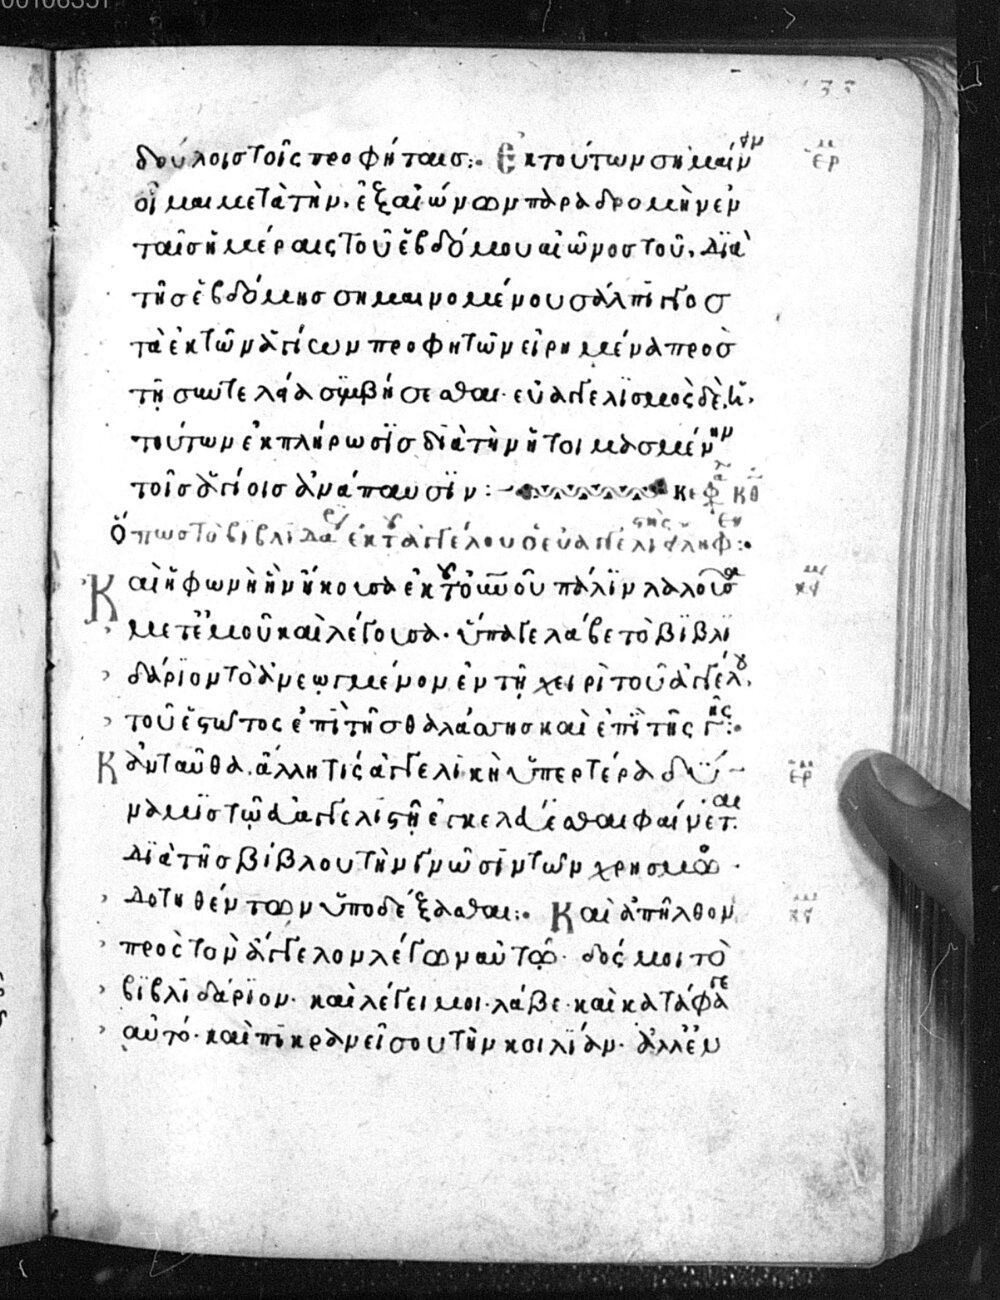 00106351
133
δούλοισ τοῖς προφήταισ:· Ἐκ τούτων σημαίν ερμ
οἶμαι μετὰ τὴν, ἐξ αἰώνων παραδρομὴν ἐν
ταῖσ ἡμέραις τοῦ ἑβδόμου αἰῶνοσ τοῦ, διὰ
τῆσ ἑβδόμησ σημαινομένου σάλπιγγοσ
τὰ ἐκ τῶν ἁγίων προφητῶν εἰρημένα πρὸσ
τῆ συντελεία συμβήσεσθαι· εὐαγγελισμὸς δὲ, ἡ,
τούτων ἐκπλήρωσισ διὰ τὴν ἡτοιμασμένην
τοῖσ ἁγίοισ ἀνάπαυσιν :– κεφα κθ
Ὅπωσ τὸ βιβλιδα ἐκ τ ἀγγέλου ὁ εὐαγγελιστὴς εἴληφεν:·
Καὶ ἡ φωνὴ ἣν ἤκουσα ἐκ του ουνου πάλιν λαλοῦσα κυ
μετ ἐμοῦ καὶ λέγουσα· ὕπαγε λάβε τὸ βιβλι
δάριον τὸ ἀνεωγμένον ἐν τῆ χειρὶ τοῦ ἀγγέλου,
τοῦ ἑστῶτος ἐπὶ τῆσ θαλάσσησ καὶ ἐπὶ τῆς γῆς:·
Κἀνταῦθα, ἄλλη τίς ἀγγελικὴ ὑπερτέρα δύ– ερμ
μαμισ τῶ ἀγγελιστῆ ἐγκελεύεσθαι φαίνεται.
διὰ τῆσ βίβλου τὴν γνῶσιν τῶν χρησμῶ
δοτηθέντων ὑποδέξασθαι:· Καὶ ἀπῆλθον κυ
πρὸς τὸν ἄγγελον λέγων αὐτῶ· δός μοι τὸ
βιβλιδάριον· καὶ λέγει μοι· λάβε· καὶ κατάφαγε
αὐτό· καὶ πικρανεῖ σου τὴν κοιλίαν· ἀλλ ἐν